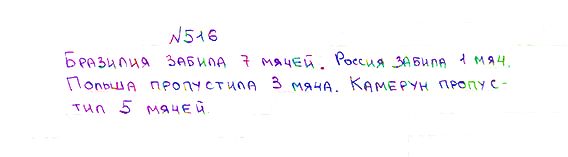 №516
Бразилия забила 7 мячей. Россия забила 1 мяч.
Польша пропустила 3 мяча. Камерун пропус-
тил 5 мячей